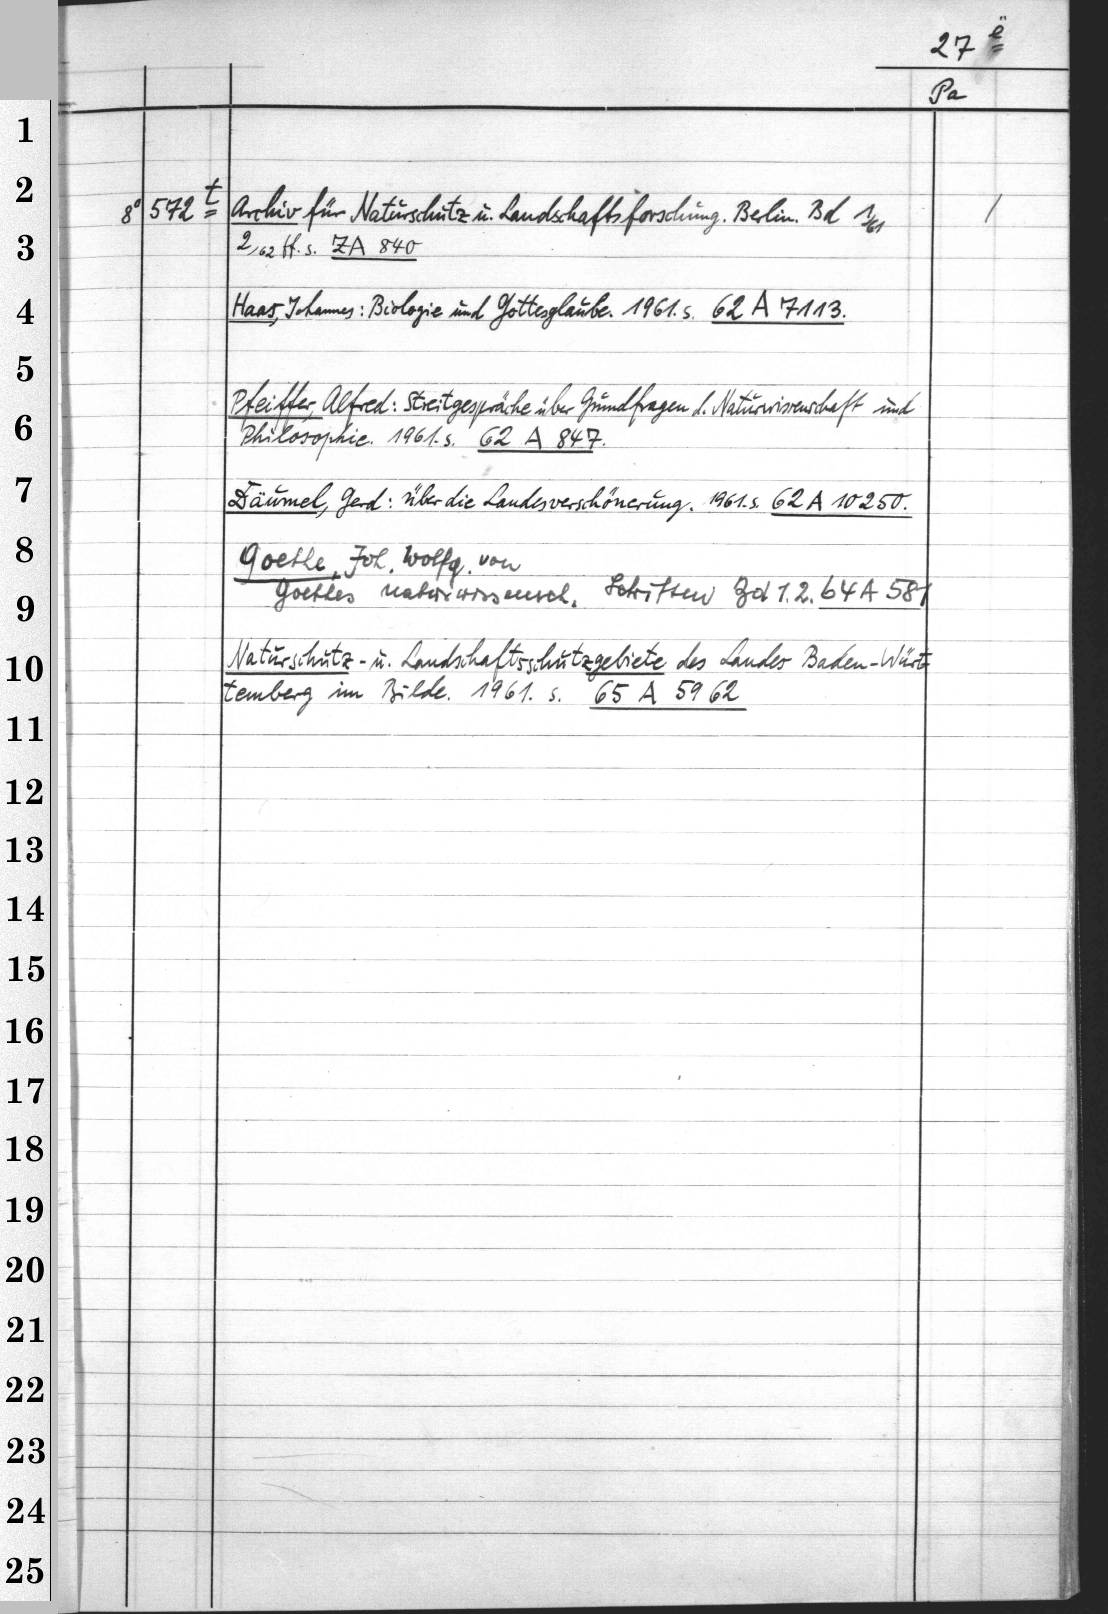 27 ë
Pa
1
2
8° 572 t Archiv für Naturschutz u. Landschaftsforschung. Berlin. Bd 1,61
3
2,62 ff. s. ZA 840
4
Haas, Johannes: Biologie und Gottesglaube. 1961. s. 62 A 7113.
5
Pfeiffer, Alfred: Streitgespräche über Grundfragen d. Naturwissenschaft und
6
Philosophie. 1961. s. 62 A 847.
7
Däumel, Gerd: über die Landesverschönerung. 1961. s. 62 A 10250.
8
Goethe, Joh. Wolfg. von
9
Goethes naturwissensch. Schriften Bd 1.2. 64 A 581
10
Naturschutz- u. Landschaftsschutzgebiete des Landes Baden-Würt-
temberg im Bilde. 1961. s. 65 A 5962
11
12
13
14
15
16
17
18
19
20
21
22
23
24
25